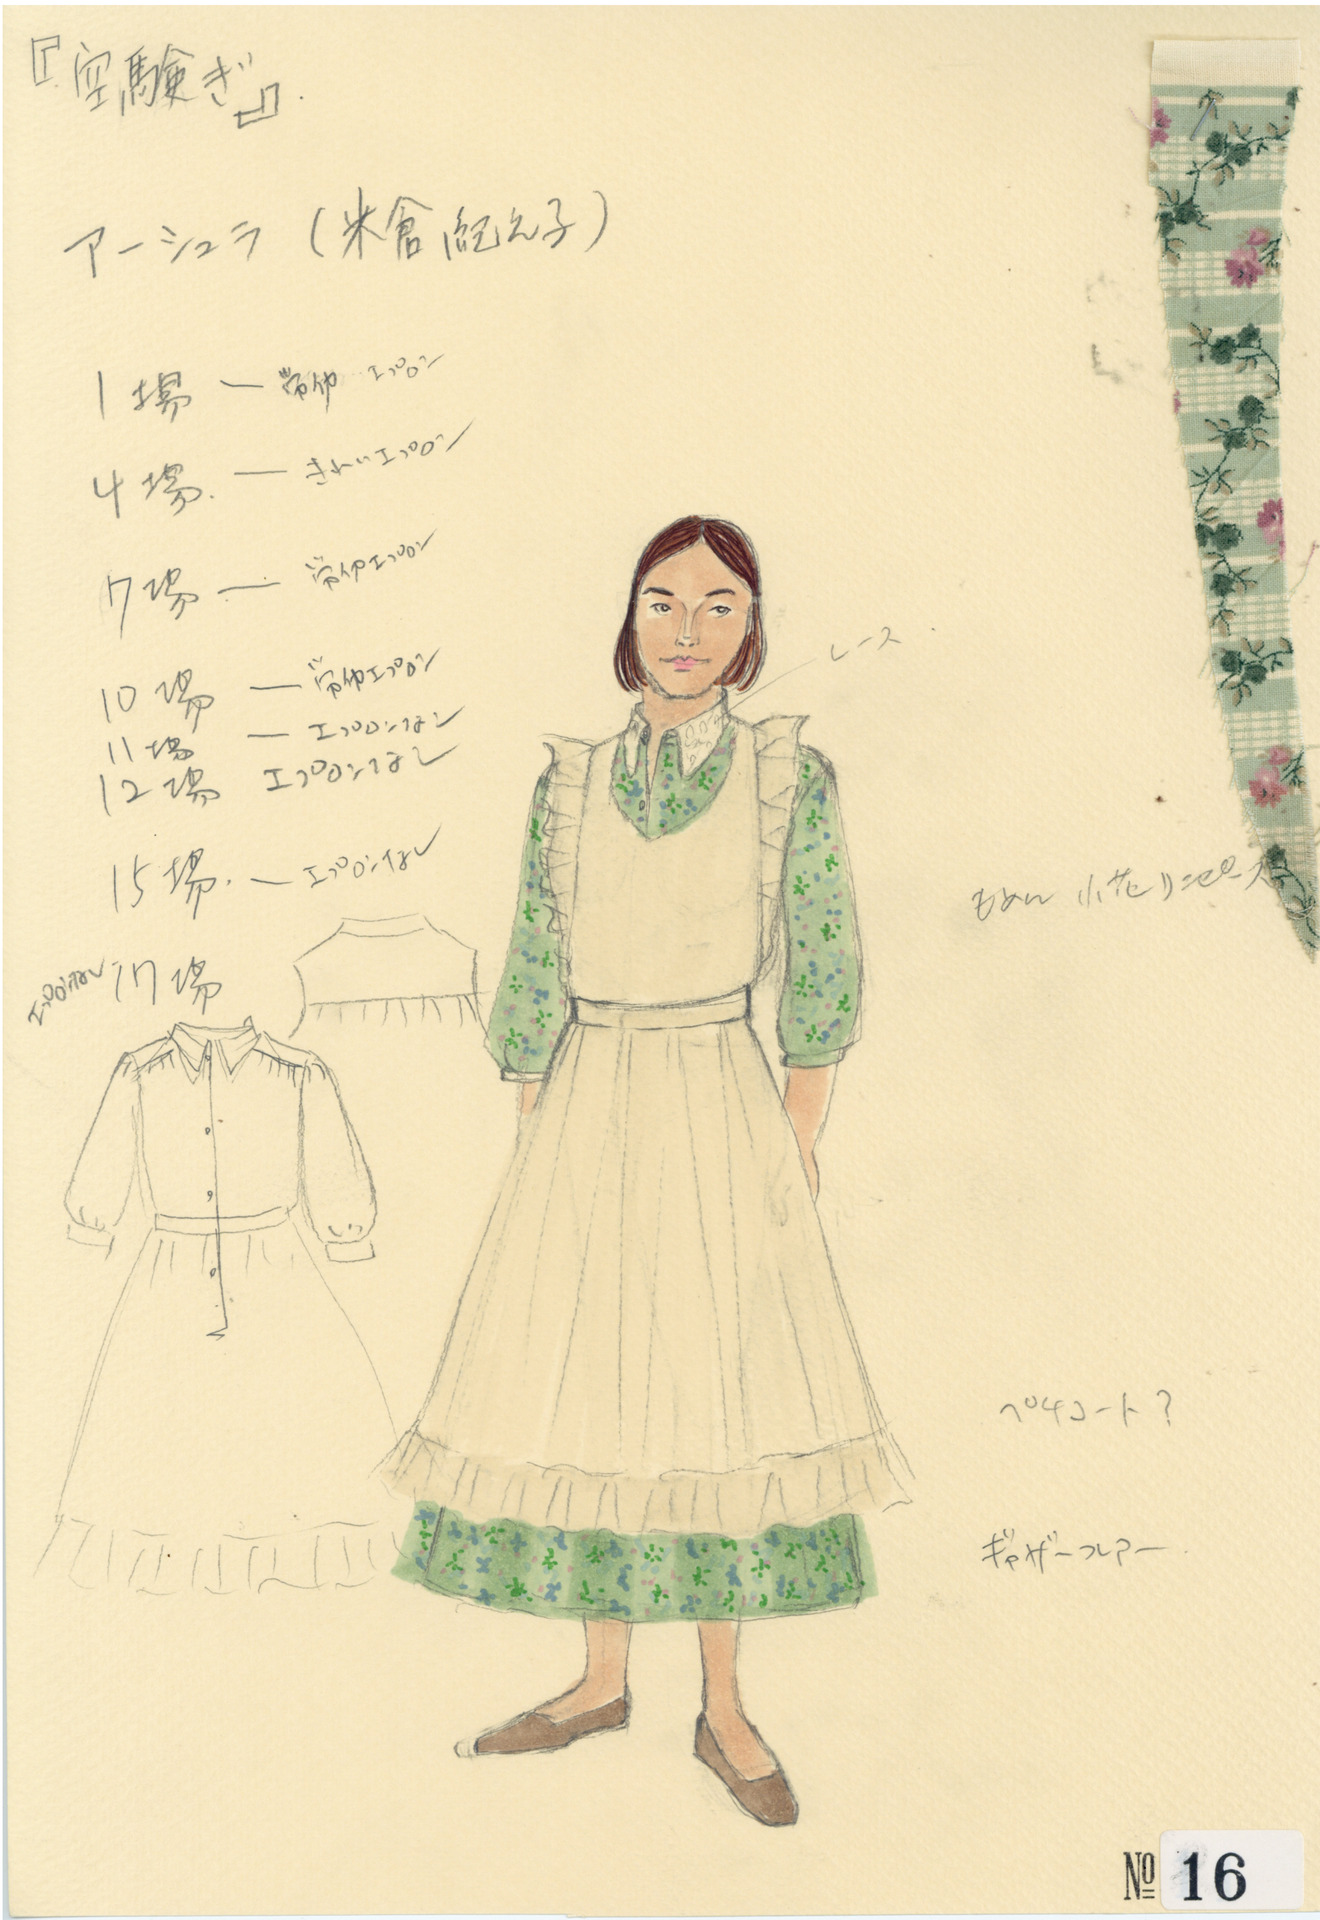 『空騒ぎ』.
アーシュラ (米倉紀之子)
1場 ー 常的 エプロン
4場. ー きれいエプロン
7場 ー 常的エプロン
10場 ー 常的エプロン
11場 ー エプロンなし
12場 エプロンなし
15場. ー エプロンなし
エプロンなし 17場
レース
もめん 小花ワンピース
ペチコート?
ギャザーフレアー
№ 16